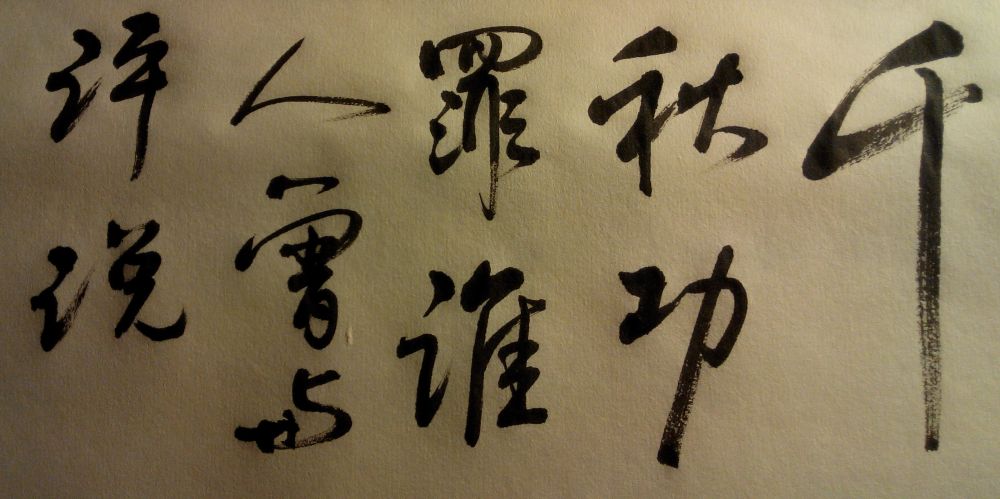 千
秋功
罪谁
人曾与
评说